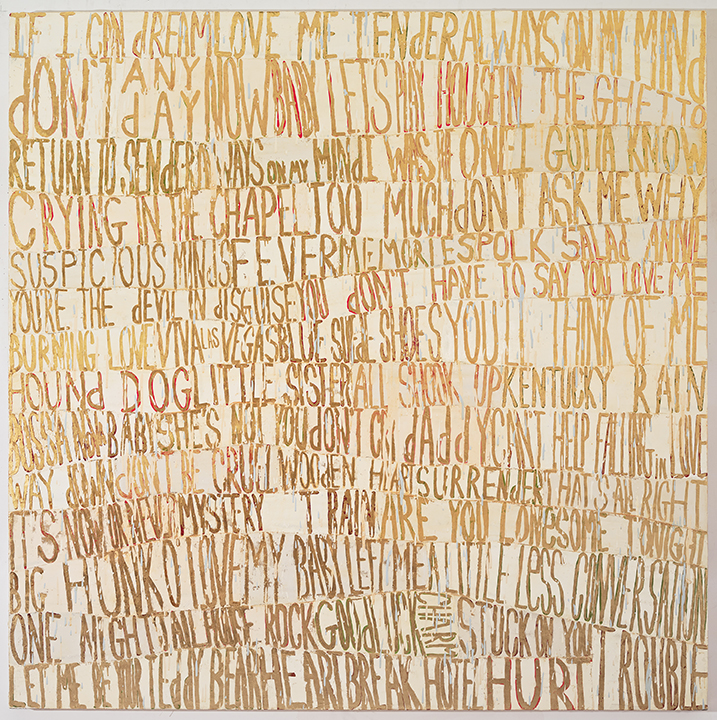 IF I CAN dREAM LOVE ME TENdER ALWAYS ON MY MINd
dON'T ANY dAY NOW BABY LETS PLAY HOUSE IN THE GHETTO
RETURN TO SENdER ALWAYS ON MY MINd I WAS THE ONE I GOTTA KNOW
CRYING IN THE CHAPEL TOO MUCH dON'T ASK ME WHY
SUSPICIOUS MINdS FEEVER MEMORIES POLK SALAd ANNIE
YOU'RE THE dEVIL IN dISGUISE YOU dON'T HAVE TO SAY YOU LOVE ME
BURNING LOVE VIVA LAS VEGAS BLUE SUEdE SHOES YOU'LL THINK OF ME
HOUNd DOG LITTLE SISTER ALL SHOOK UP KENTUCKY RAIN
BOSSA NOVA BABY SHE'S NOT YOU dON'T CRY dAddY CAN'T HELP FALLING IN LOVE
WAY dOWN dON'T BE CRUEL WOOdEN HEART SURRENdER THAT'S ALL RIGHT
IT'S NOW OR NEVER MYSTERY TRAIN ARE YOU LONESOME TONIGHT
BIG HUNK O LOVE MY BABY LEFT ME A LITTLE LESS CONVERSATION
ONE NIGHT JAILHOUSE ROCK GOOd LUCK CHARM STUCK ON YOU
LET ME BE YOUR TEddY BEAR HEARTBREAK HOTEL HURT TROUBLE